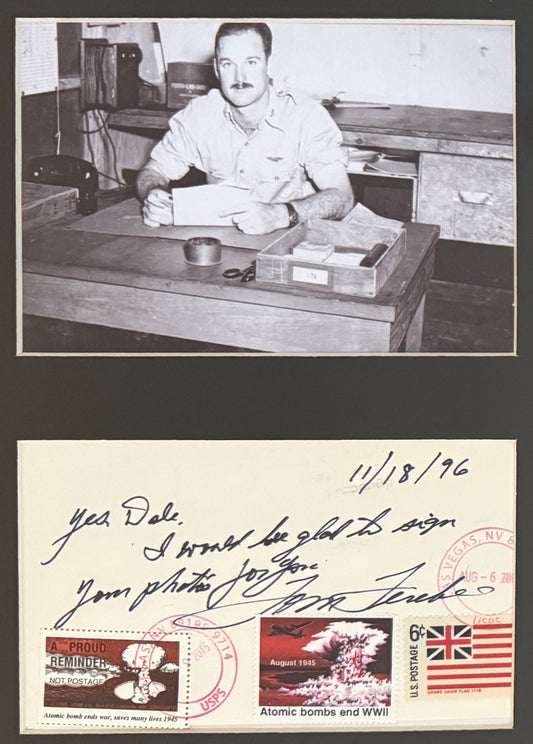 IN
11/18/96
Yes Dale,
I would be glad to sign
your photos for you
Tom Ferebee
LAS VEGAS, NV 8
AUG-6 20
USPS
A PROUD
REMINDER
NOT POSTAGE
Atomic bomb ends war, saves many lives 1945
NV 89199-9714
2015
USPS
August 1945
Atomic bombs end WWII
6¢
U.S. POSTAGE
GRAND UNION FLAG 1776